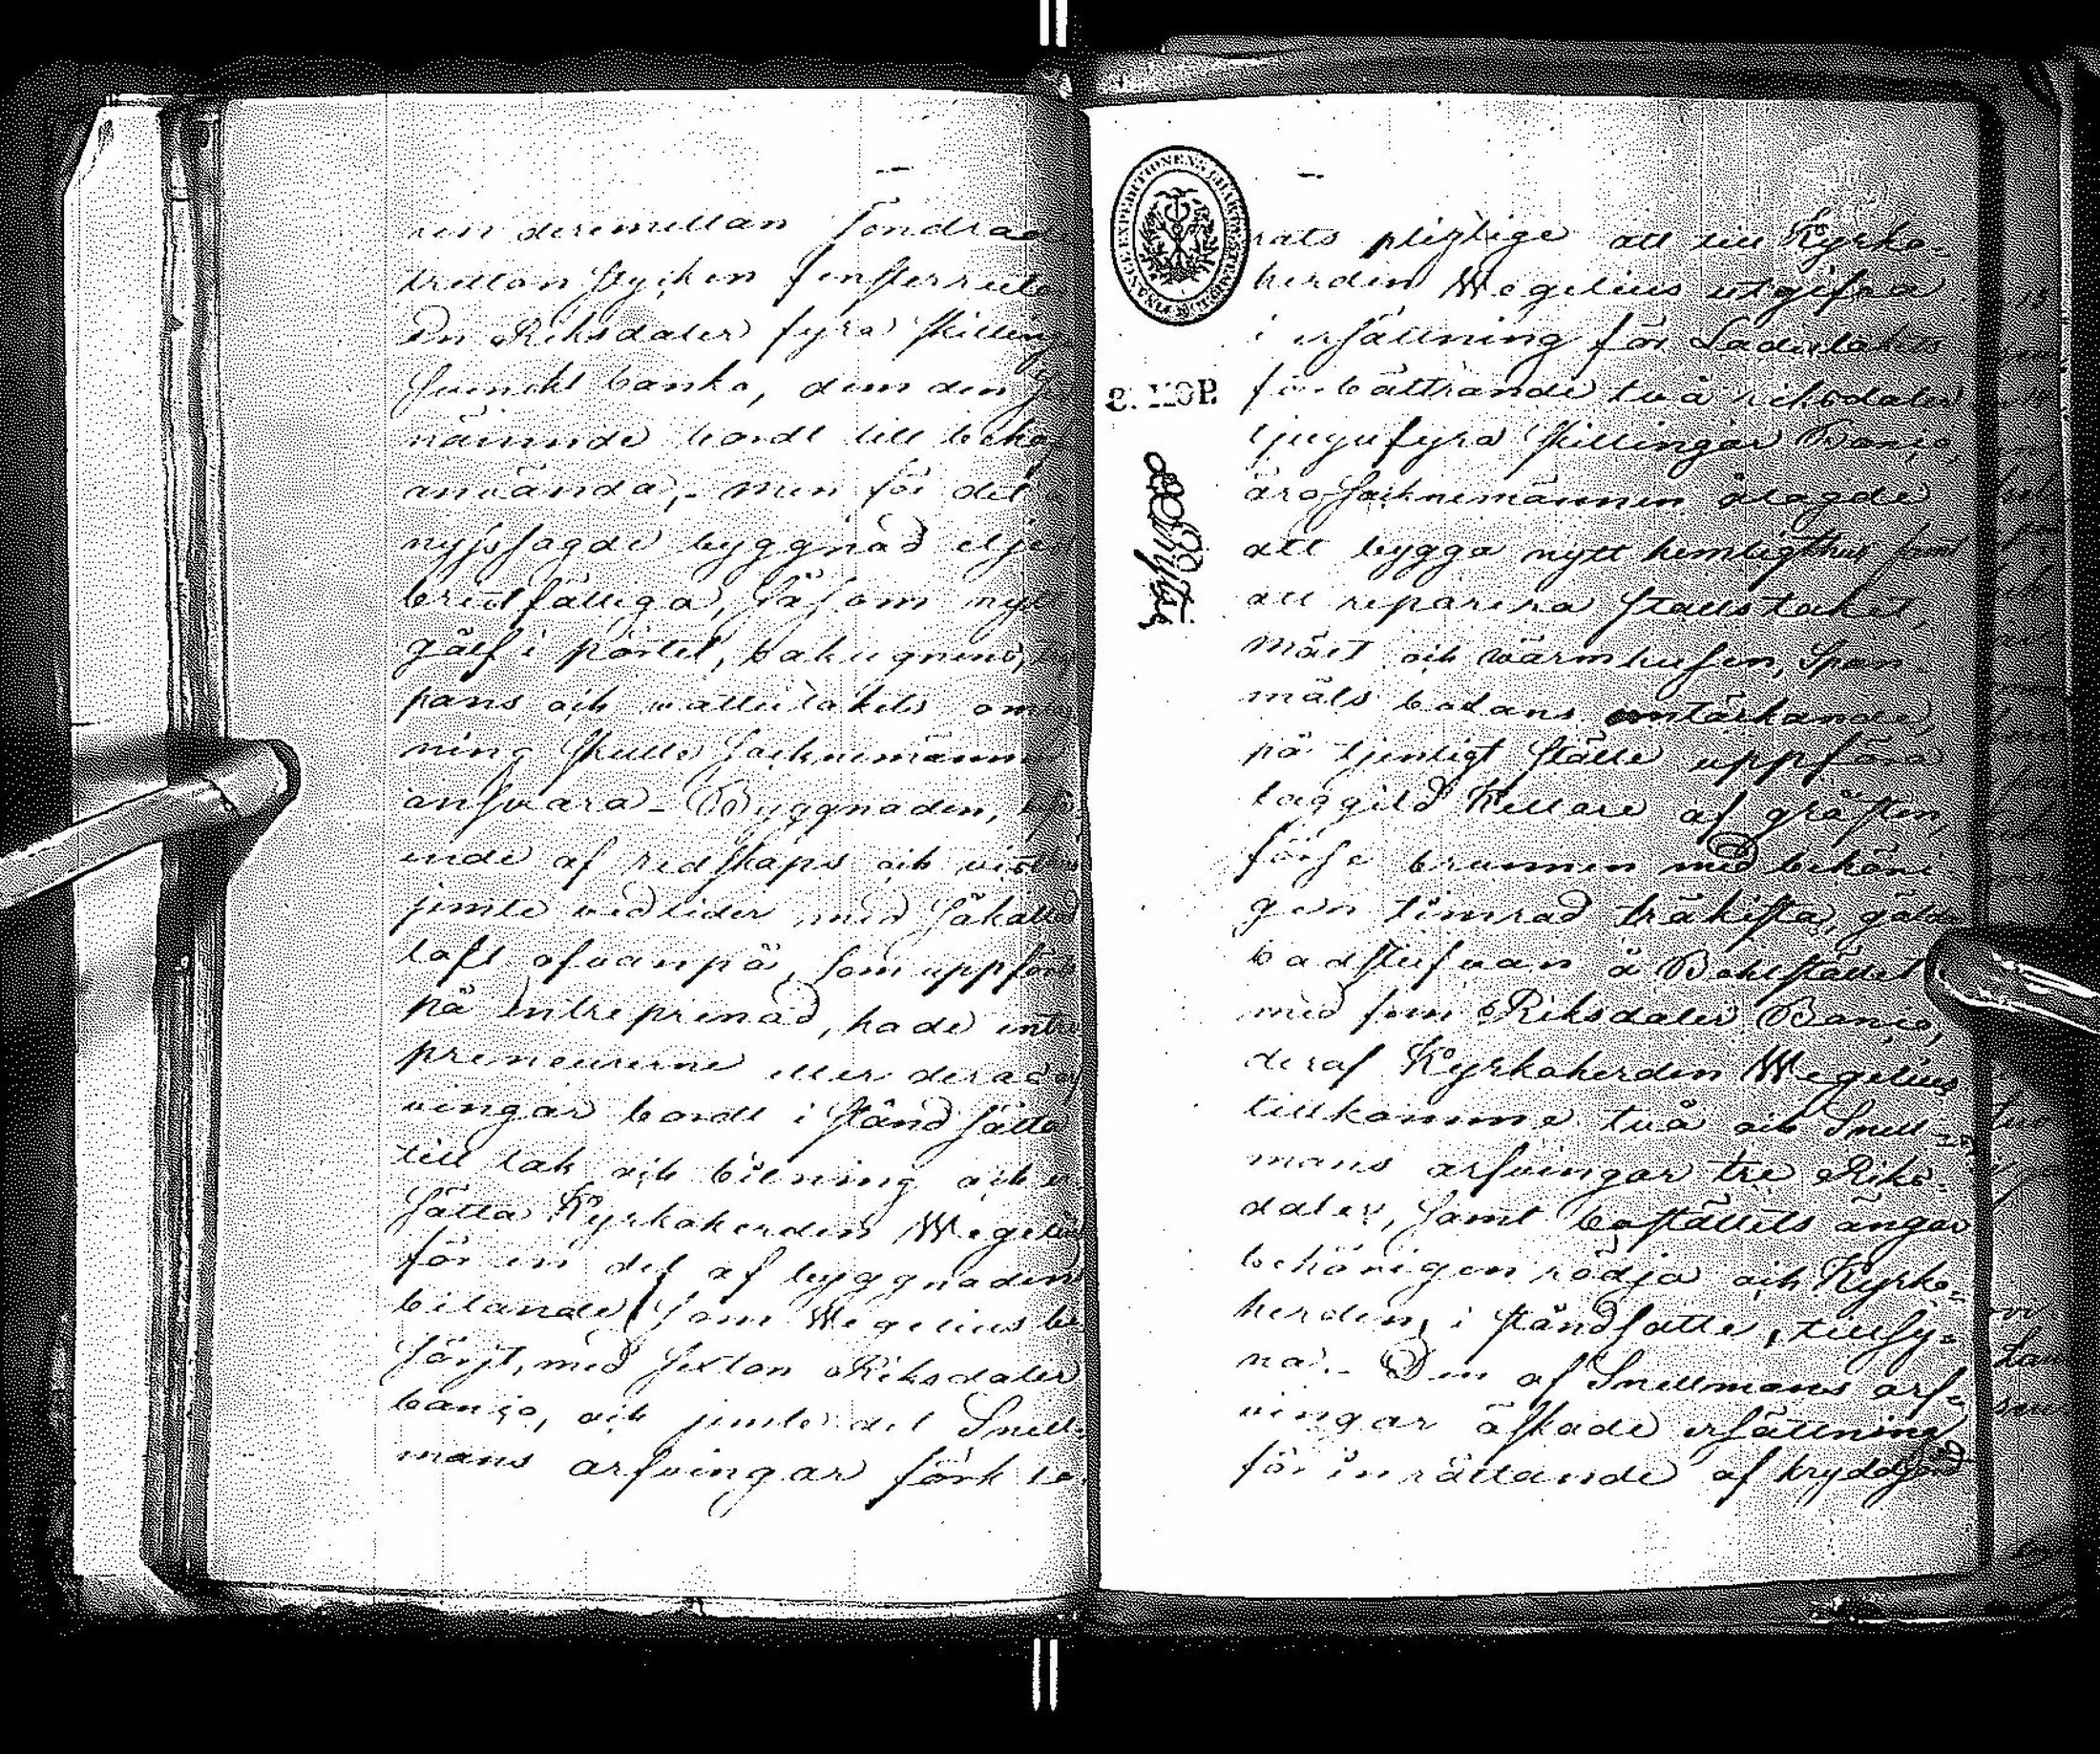 ren deremellan söndrade
tretton stycken fensterrutor
En Riksdaler fyra skilling
svenskt banko, dem den
nämnde bordt till behof
använda, - men för det
nyss sagde byggnad
bredfälliga, såsom nytt
gålf i pörtet, bakugnens,
pans och taketets
ning skulle Socknemännen
ansvara - Byggnaden,
ende af redskaps och
jemte vedlider, med såkallad
loft ofvanpå, som uppförts
på Entreprenad, hade entre
preneurerne eller deras arf
vingar bordt i stånd sätta
till tak och bilning och er
sätta Kyrkoherden Wegelius
för en del af byggnadens
bilande, som Wegelius be
sörjt, med sexton Riksdaler
banco, och jemte det Snell-
mans arfvingar förkla
rats pligtige att till Kyrko-
herden Wegelius utgifva
i ersättning för Ladutakets
förbättrande två riksdaler
tjugufyra skillingar Banco,
äro Socknemännen ålagde
att bygga nytt hemligthus samt
att reparera stallstaket,
Mält och wärmhusen, Span-
måls bodans omtäckande,
på tjenligt ställe uppföra
laggild Källare af gråsten,
förse brunnen med behöri
gen timrad träkista, gälda
badstufvan å Bohlstället
med fem Riksdaler Banco,
deraf Kyrkoherden Wegelius
tillkomme två och Snell-
mans arfvingar tre Riks-
daler, samt boställets ängar
behörigen rödja och Kyrko-
herden, i ståndsatte, tillsy-
na. - Den af Snellmans arf-
vingar äskade ersättning
för inrättande af kryddgård